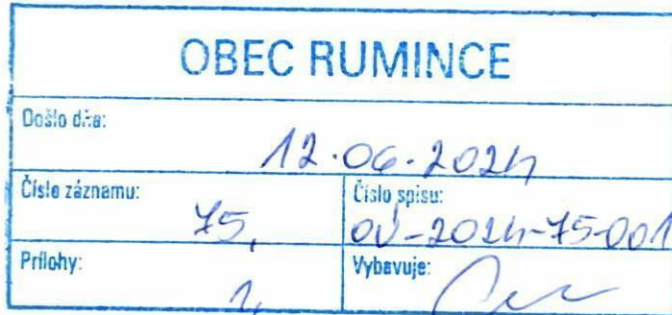 OBEC RUMINCE
Došlo dňa:
12.06.2024
Číslo záznamu:
75,
Číslo spisu:
OÚ-2024-75-001
Prílohy:
1,
Vybavuje: